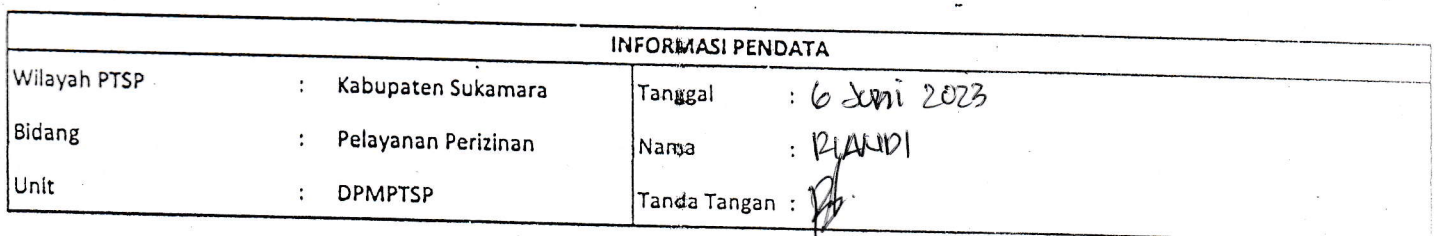 INFORMASI PENDATA
Wilayah PTSP : Kabupaten Sukamara
Bidang : Pelayanan Perizinan
Unit : DPMPTSP
Tanggal : 6 Juni 2023
Nama : RIANDI
Tanda Tangan :